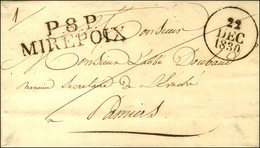 P. 8. P.
MIREPOIX
22
DEC
1830
Monsieur
Monsieur L'abbé Doubau
ancien Secretaire de L'Evêché
Pamiers